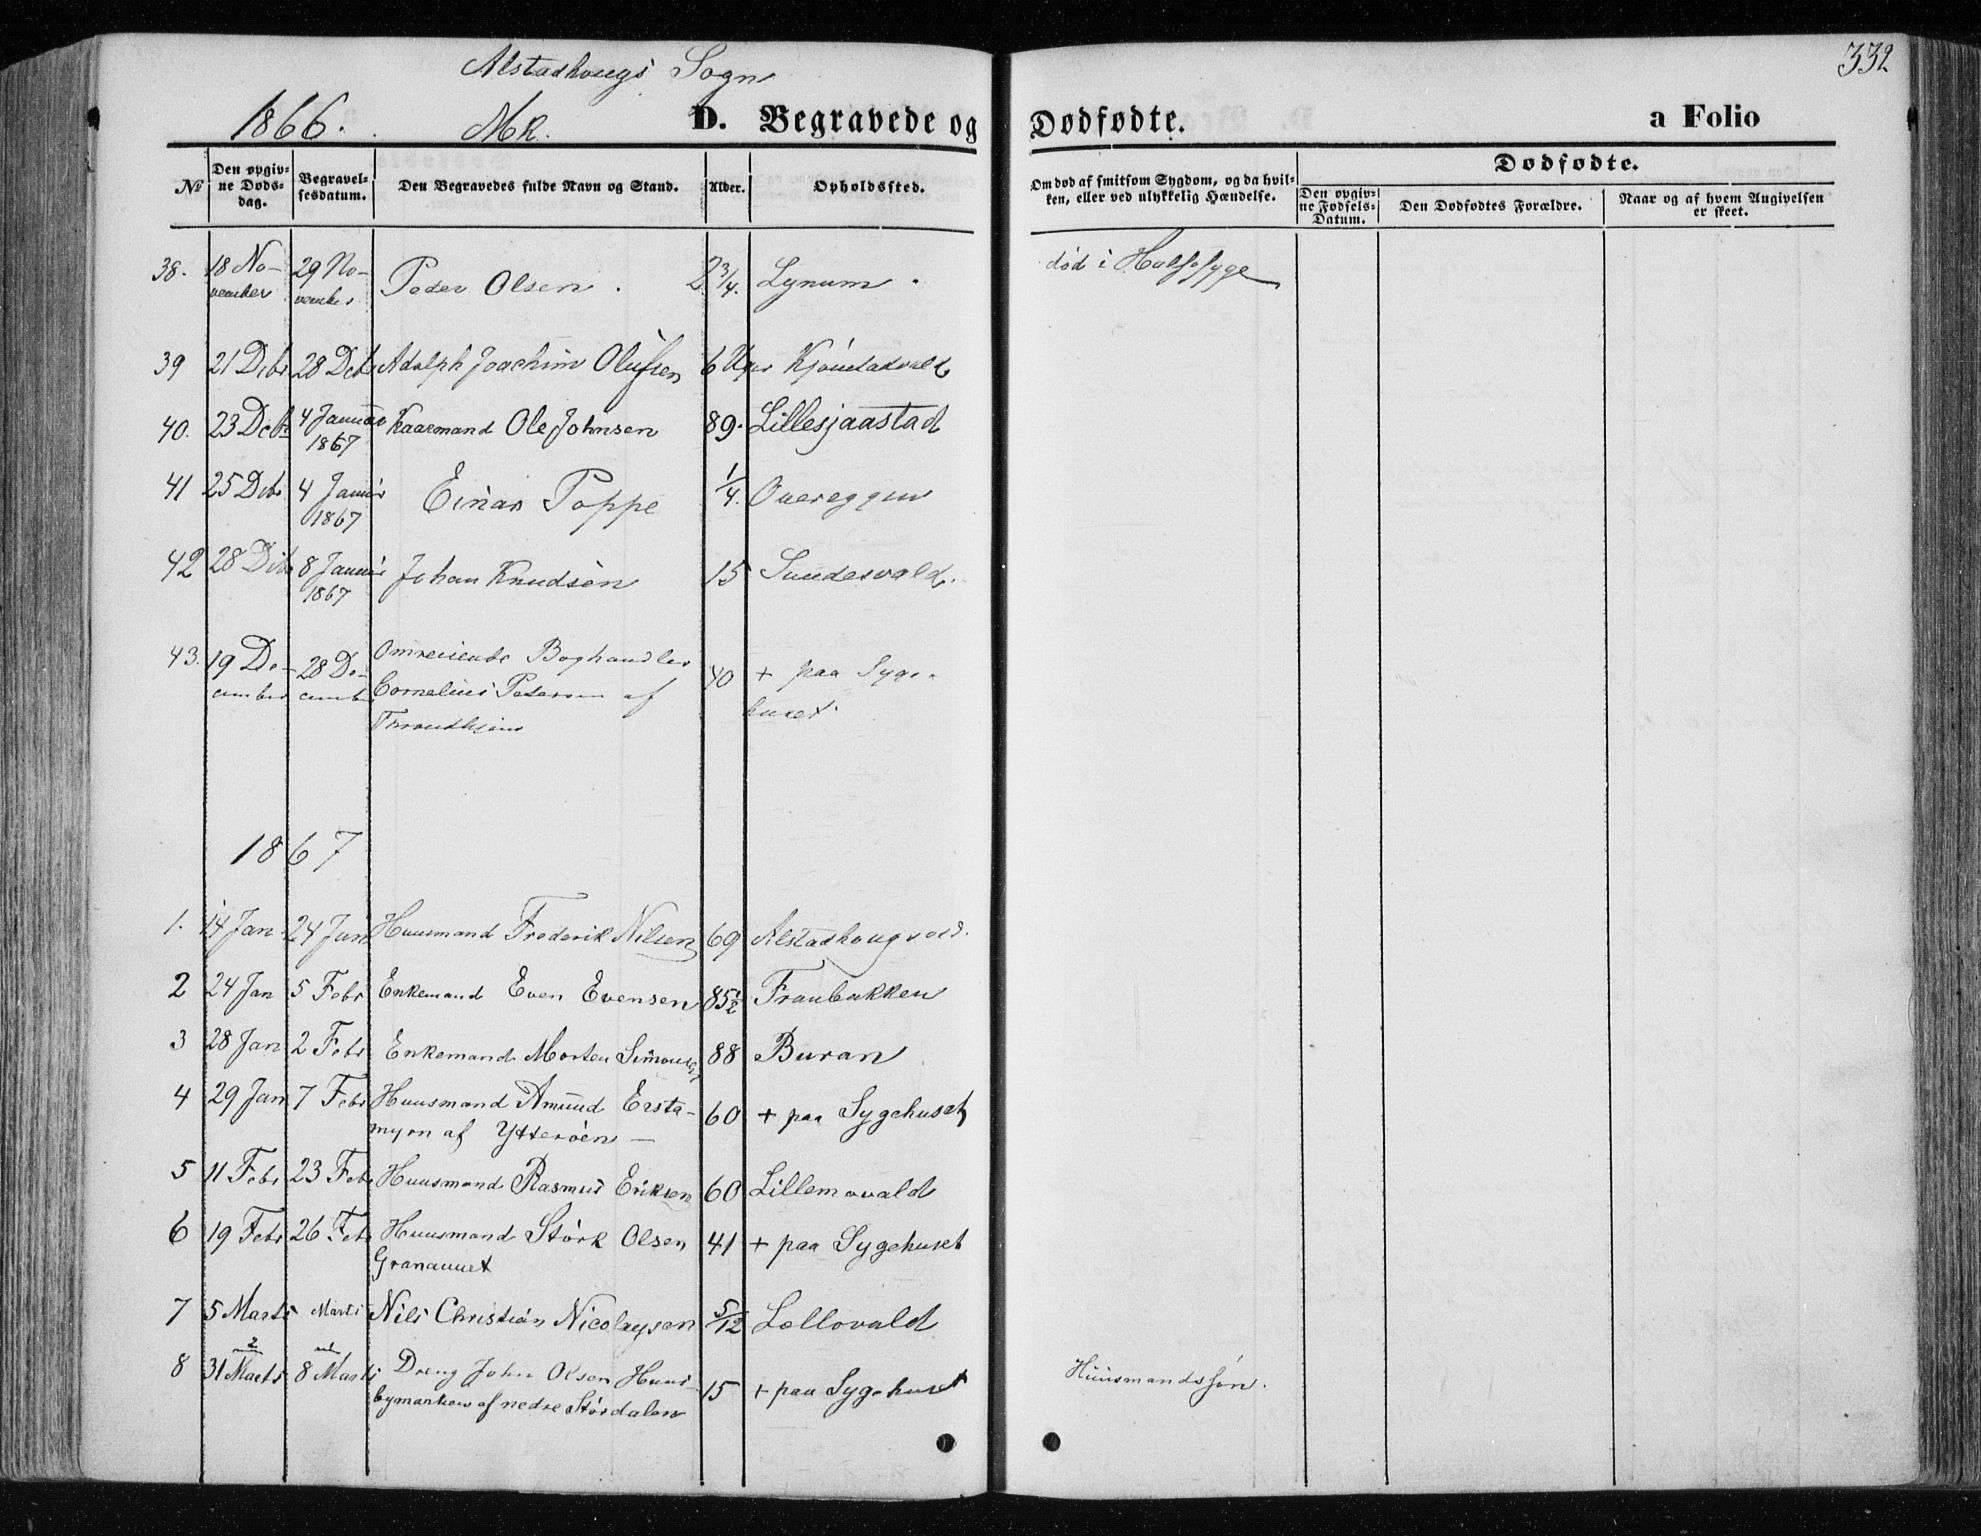 Alstadhougs Sogn
332
1866. Mk. D. Begravede og Dødfødte. a Folio
No Den opgivne Døds-dag. Begravelsesdatum. Den Begravedes fulde Navn og Stand. Alder. Opholdssted. Om død af smitsom Sygdom, og da hvilken, eller ved ulykkelig Hændelse. Dødfødte. Den opgivne Fødsels-Datum. Den Dødfødtes Forældre. Naar og af hvem Angivelsen er skeet.
38. 18 No- 29 No- Peder Olsen . 2 3/4. Lynum . død i Halssyge
vember vember
39 21 Debr 28 Deb Adolph Joachim Olufsen 6 Uger
40. 23 Debr 4 Januar Kaarmand Ole Johnsen 89. Lillesjaastad
1867
41 25 Debr 4 Januar Einar Poppe 1/4. Overeggen
1867
42 28 Debr 8 Januar Johan Knudsen 15 Sundesvald.
1867
43. 19 De- 28 De- Omreisende Boghandler 40 + paa Syge-
cember cember Cornelius Petersen af huset.
Throndhjem
1867
1. 14 Jan 24 Jan Huusmand Frederik Nilsen 69 Alstadhougvald.
2 24 Jan 5 Febr Enkemand Even Evensen 85 1/2 Franbakken
3 28 Jan 2 Febr Enkemand Morten Simonsen 88 Buran
4 29 Jan 7 Febr Huusmand Amund Ersta- 60 + paa Sygehuset
myrn af Ytterøen —
5 11 Febr 23 Febr Huusmand Rasmus Eriksen 60 Lillemovald
6 19 Febr 26 Febr Huusmand Størk Olsen 41 + paa Sygehuset
Granaunet
7 5 Marts Marts Nils Christian Nicolaysen 5/12 Lællovald
8 31 Marts 8 Marts Dreng John Olsen Huus- 15 + paa Sygehuset Huusmandssøn.
bymarken af nedre Størdalen